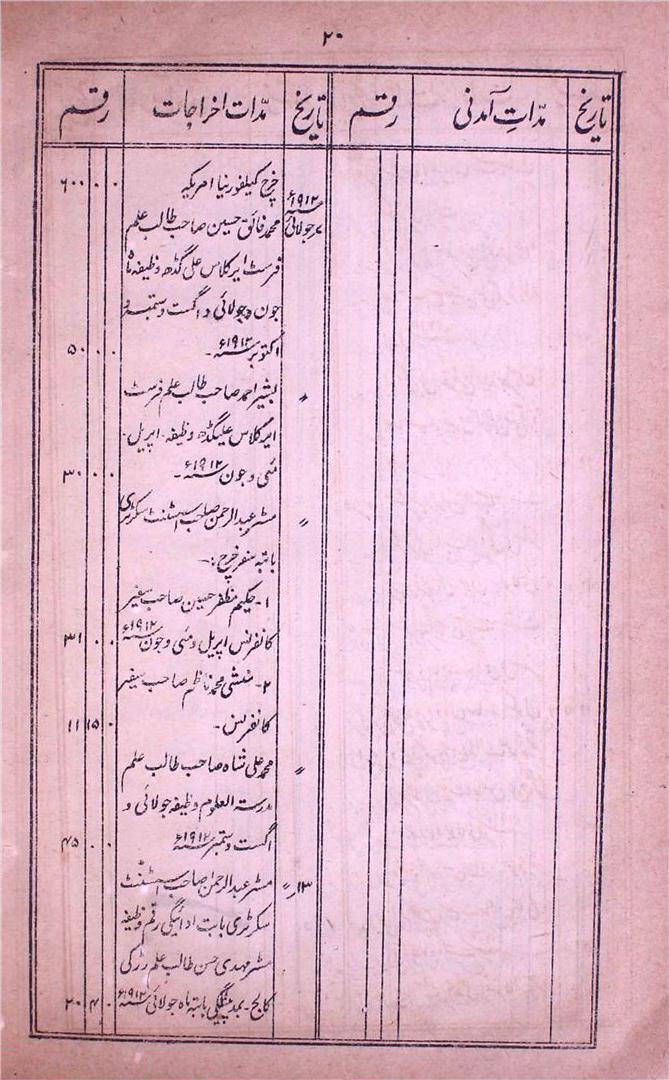 ۲۰
تاریخ مدّاتِ آمدنی رقم تاریخ مدّات اخراجات رقم
خرچ کیلفورنیا امریکہ ۶۰۰ ۰ ۰
۱۹۱۲ء
۷ جولائی محمد فائق حسین صاحب طالب علم
فرسٹ ایر کلاس علی گڈھ وظیفہ ماہ
جون و جولائی و اگست و ستمبر و
اکتوبر ۱۹۱۲ء۔ ۵۰ ۰ ۰
〃 بشیر احمد صاحب طالب علم فرسٹ
ایر کلاس علیگڈھ وظیفہ۔ اپریل۔
مئی و جون ۱۹۱۲ء۔ ۳۰ ۰ ۰
〃 مسٹر عبدالرحمن صاحب اسسٹنٹ سکرٹری
بابتہ سفر خرچ:۔
۱۔ حکیم مظفر حسین صاحب سفیر
کانفرنس اپریل و مئی و جون ۱۹۱۲ء ۳۱ ۰ ۰
۲۔ منشی محمد ناظم صاحب سفیر
کانفرنس۔ ۱۱ ۱۵ ۰
〃 محمد علی شاہ صاحب طالب علم
مدرستہ العلوم وظیفہ جولائی و
اگست و ستمبر ۱۹۱۲ء ۴۵ ۰ ۰
۱۳ 〃 مسٹر عبدالرحمٰن صاحب اسسٹنٹ
سکرٹری بابت ادائیگی رقم وظیفہ
مسٹر مہدی حسن طالب علم رڑکی
کالج۔ بمد پیشگی بابتہ ماہ جولائی ۱۹۱۲ء ۲۰ ۴ ۰